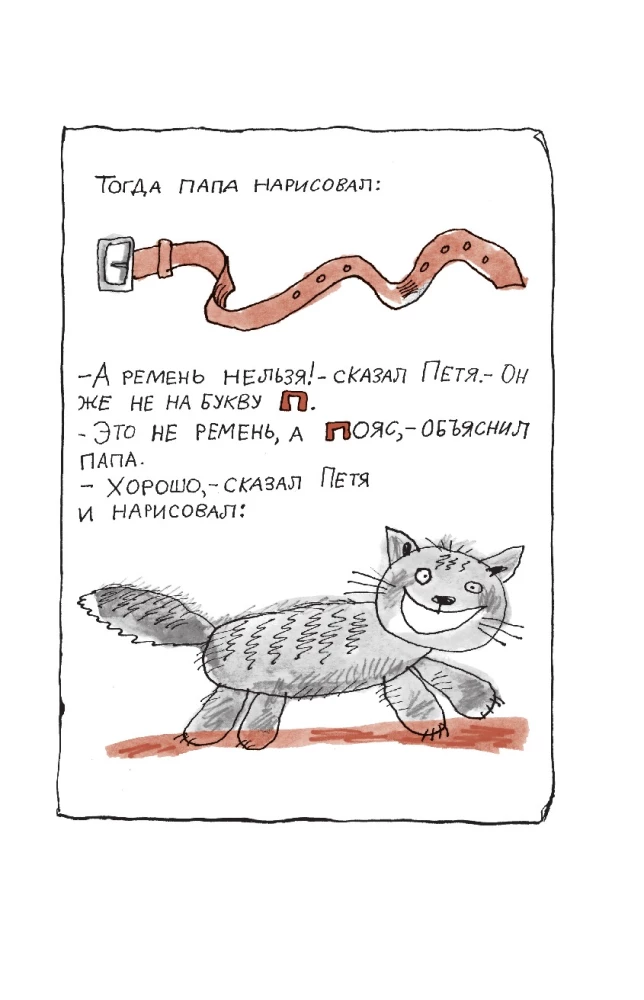 Тогда папа нарисовал:
-А ремень нельзя!-сказал Петя.-Он
же не на букву П.
-Это не ремень, а Пояс,-объяснил
папа.
- Хорошо,-сказал Петя
и нарисовал: